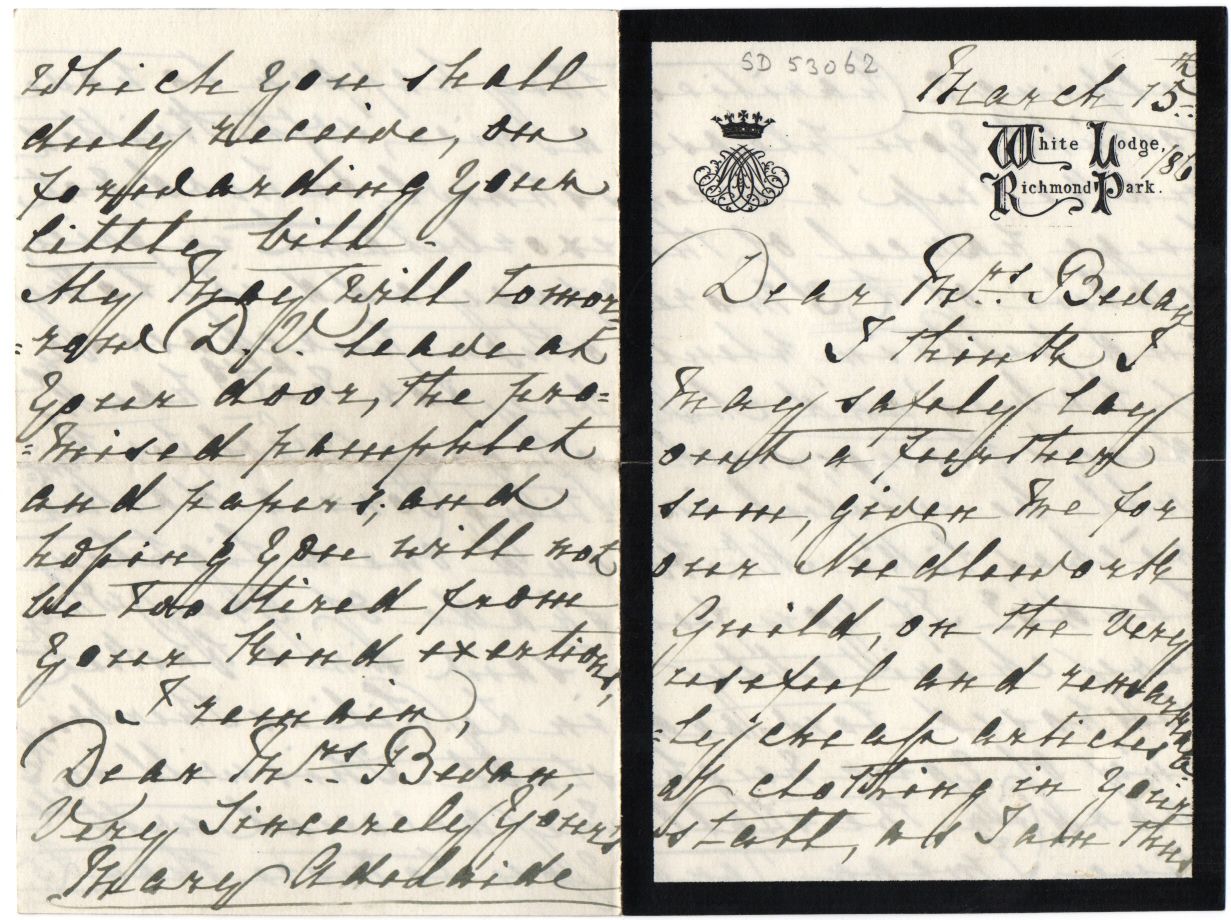 SD 53062
March 15th
White Lodge,
Richmond Park.
186
Dear Mrs. Bevan
I think I
may safely lay
out a further
sum, given me for
our Needlework
Guild, on the very
useful and remarkab=
=ly cheap articles
of clothing in your
stall, as I am thus
which you shall
duly receive, on
forwarding your
little bill.
My May will tomor=
=row D.V. leave at
your door, the pro=
=mised pamphlet
and papers; and
hoping you will not
be too tired from
your kind exertions,
I remain,
Dear Mrs. Bevan,
Very Sincerely Yours
Mary Adelaide